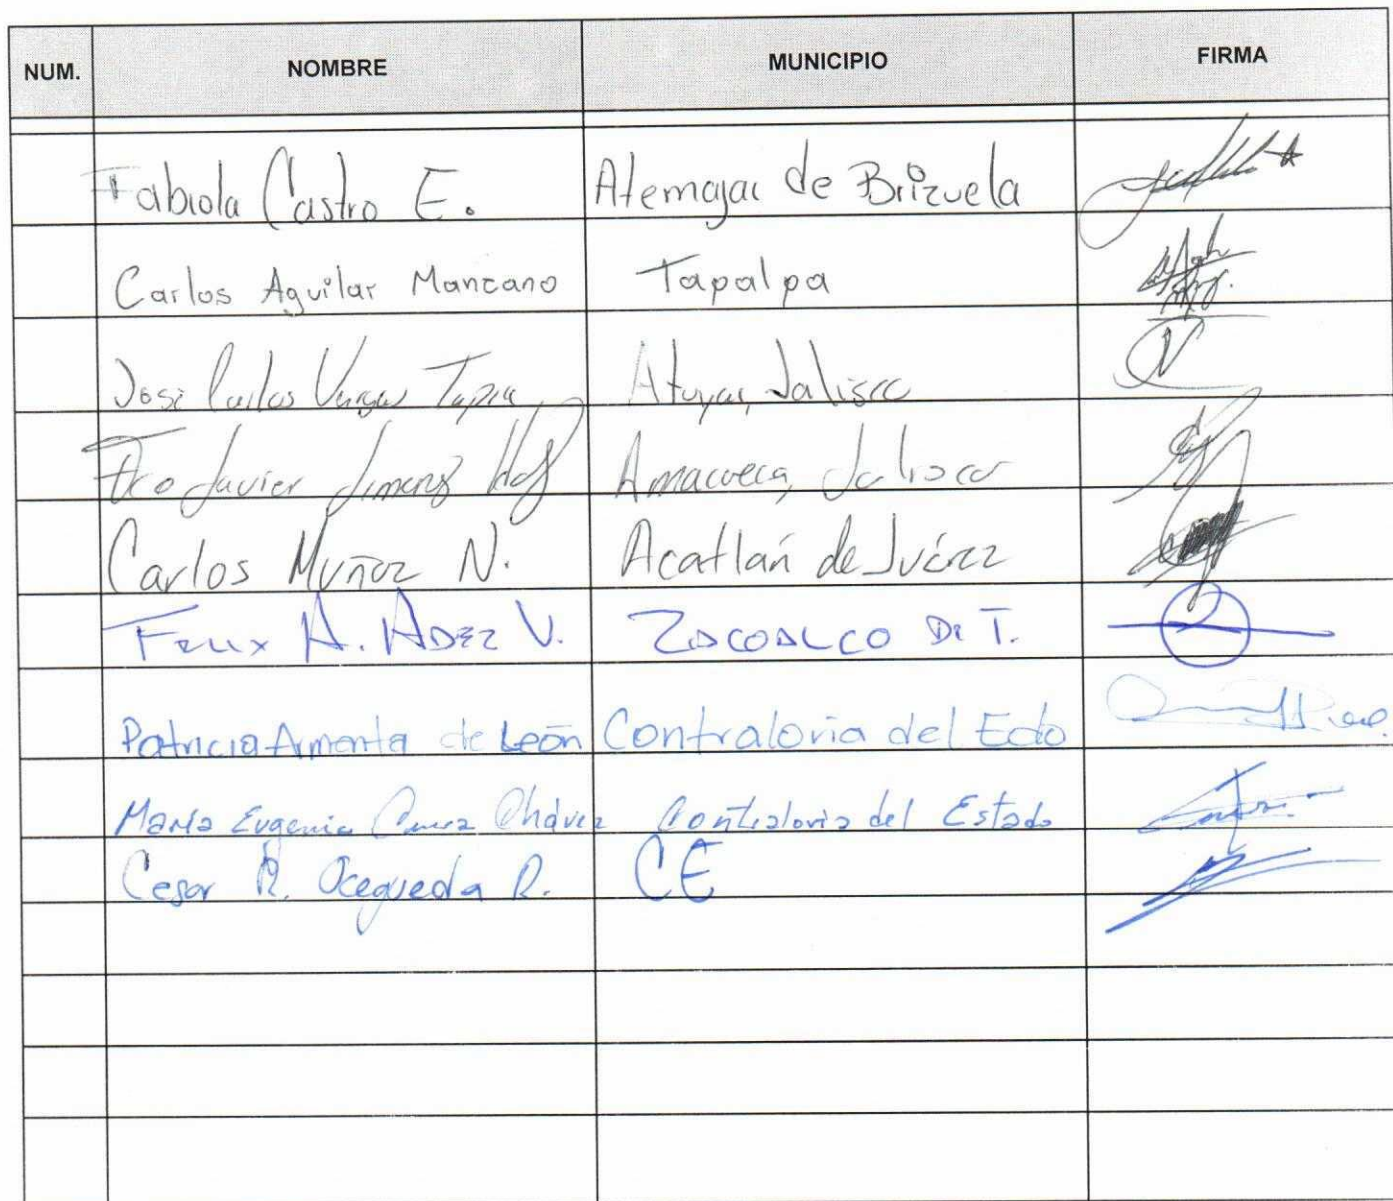 NUM. NOMBRE MUNICIPIO FIRMA
Fabiola Castro E. Atemajac de Brizuela
Carlos Aguilar Manzano Tapalpa
José Carlos Vargas Tapia Atoyac, Jalisco
Fco Javier Jimenez Amacueca, Jalisco
Carlos Muñoz N. Acatlán de Juárez
Felix A. V. Zacoalco De T.
Patricia Armenta de León Contraloria del Edo
María Eugenia Chávez Contraloria del Estado
Cesar R. Ocegueda R. CE